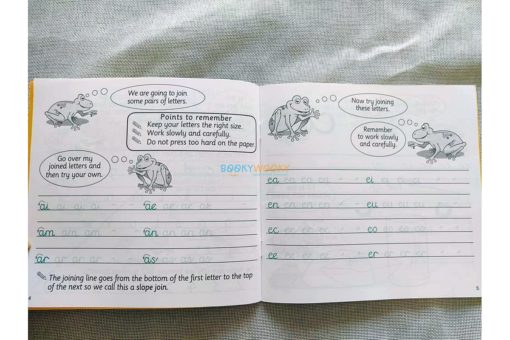 We are going to join
some pairs of letters.
Points to remember
Keep your letters the right size.
Work slowly and carefully.
Do not press too hard on the paper
Go over my
joined letters and
then try your own.
BOOKYWOOKY
ai ai ai ai
ae ae ae ae
am am am
an an an an
ar ar ar ar
as as as as
The joining line goes from the bottom of the first letter to the top
of the next so we call this a slope join.
4
Now try joining
these letters.
Remember
to work slowly
and carefully.
ea ea ea ea
ei ei ei ei
en en en en
eu eu eu eu
ec ec ec ec
eo eo eo eo
ee ee ee ee
er er er er
5